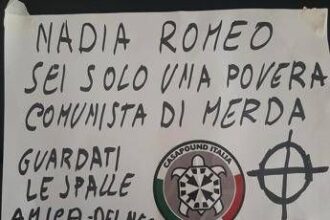 NADIA ROMEO
SEI SOLO UNA POVERA
COMUNISTA DI MERDA
GUARDATI
LE SPALLE
CASAPOUND ITALIA
AMICA